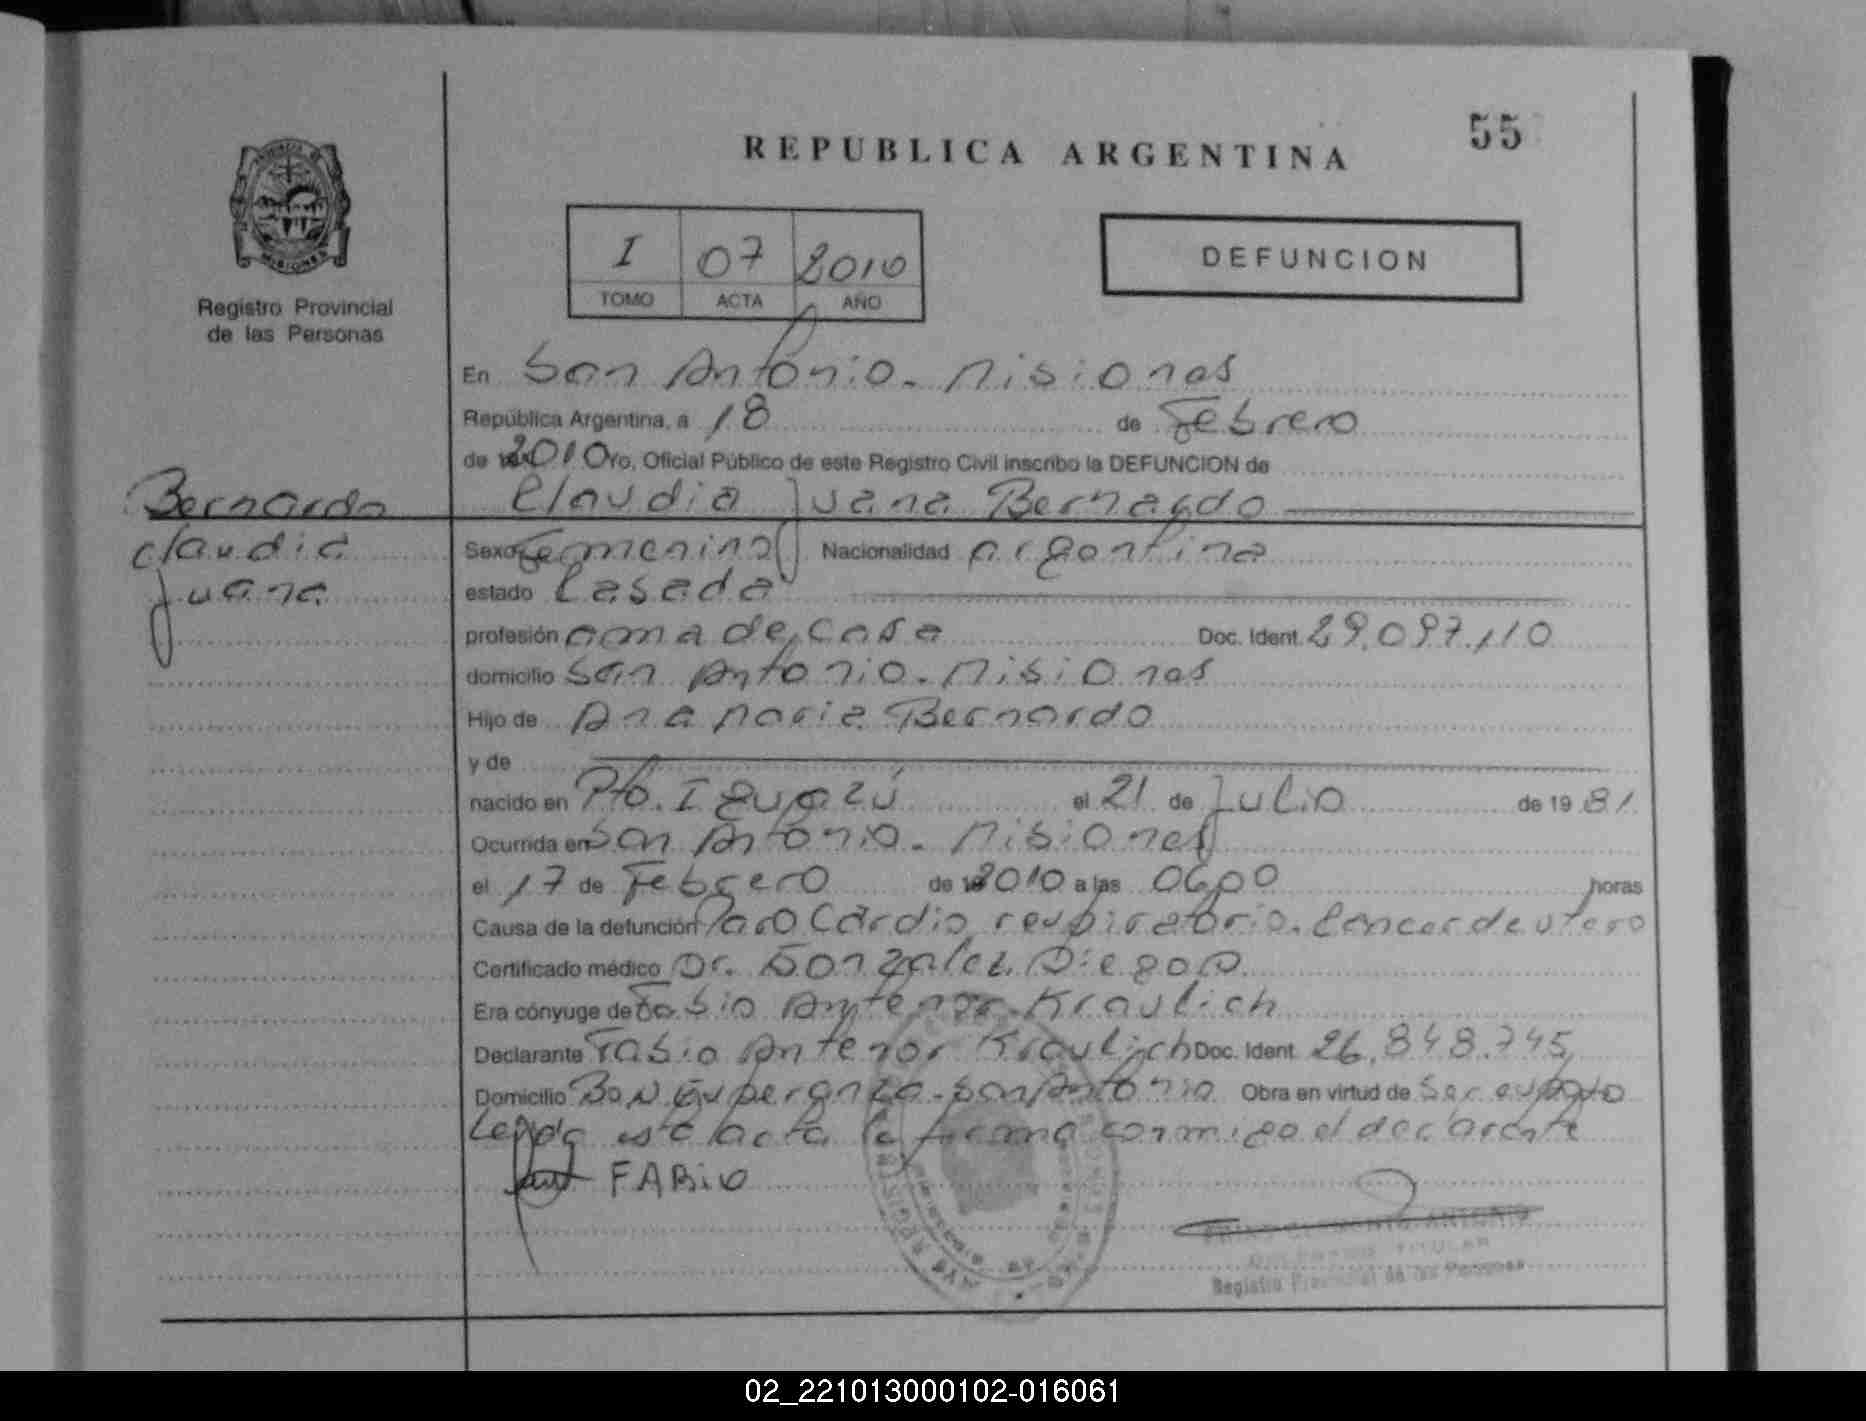 55
REPUBLICA ARGENTINA
MISIONES
Registro Provincial
de las Personas
I 07 2010
TOMO ACTA AÑO
DEFUNCION
En San Antonio. Misiones
República Argentina, a 18 de Febrero
de 2010 Yo, Oficial Público de este Registro Civil inscribo la DEFUNCION de
Claudia Juana Bernardo
Bernardo
Claudia
Juana
Sexo Femenino Nacionalidad argentina
estado Casada
profesión ama de casa Doc. Ident. 29.097.110
domicilio San Antonio. Misiones
Hijo de Ana Maria Bernardo
y de
nacido en Pto. Iguazú el 21 de Julio de 1981
Ocurrida en San Antonio. Misiones
el 17 de Febrero de 2010 a las 0600 horas
Causa de la defunción Paro Cardio respiratorio. Cancer de utero
Certificado médico Dr. Gonzalez, Diego D
Era cónyuge de Fabio Antenor Kraulich
Declarante Fabio Antenor Kraulich Doc. Ident. 26.848.745
Domicilio Bo N. Esperanza - San Antonio Obra en virtud de Ser esposo
Leida esta acta la firma conmigo el declarante
FABiO
ANTONIO
TITULAR
Registro Provincial de las Personas
02_221013000102-016061